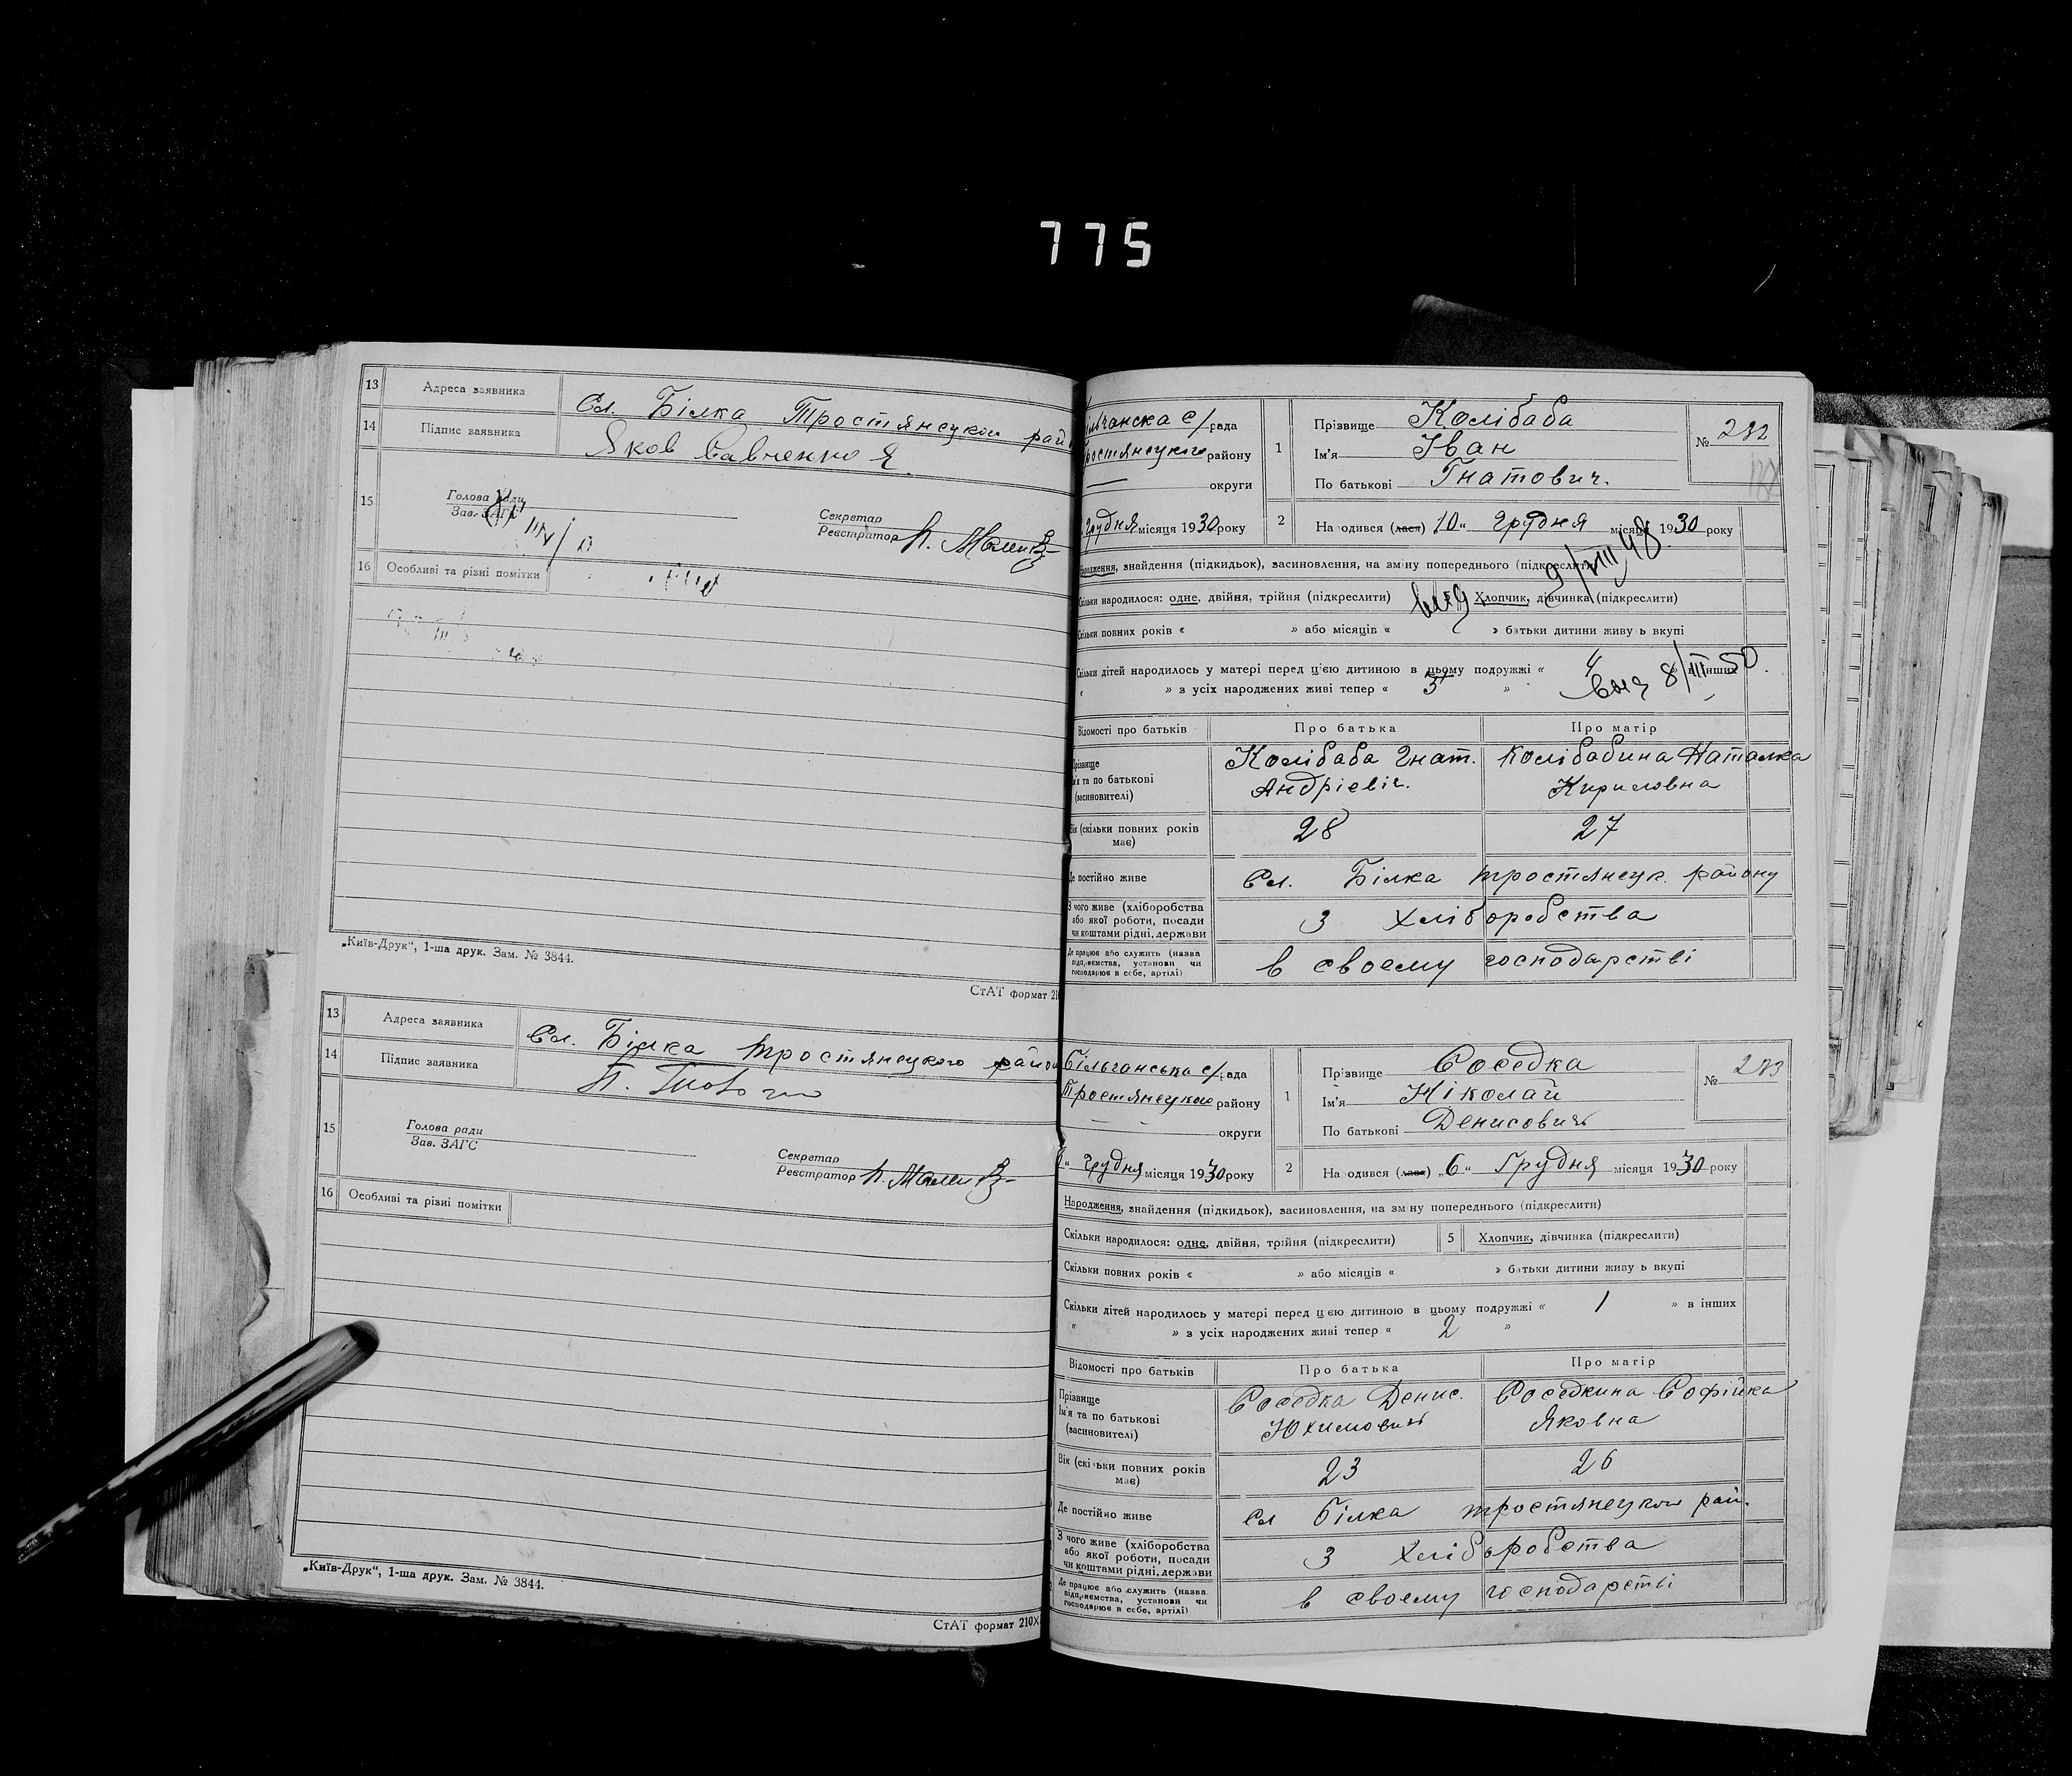 775
13 Адреса заявника Сл. Білка Тростянецком рай
14 Підпис заявника Яков Савченко Я.
15 Голова ради
Зав. ЗАГС
Секретар
Реєстратор
16 Особливі та різні помітки
„Київ-Друк“, 1-ша друк. Зам. № 3844.
СтАТ формат 21
13 Адреса заявника Сл. Білка тростянецкого райо
14 Підпис заявника
15 Голова ради
Зав. ЗАГС
Секретар
Реєстратор
16 Особливі та різні помітки
„Київ-Друк“, 1-ша друк. Зам. № 3844.
СтАТ формат 210X
льчанска с/рада
ростянецкого району
округи
Грудня місяця 1930 року
1 Прізвище Колібаба
Ім'я Іван
По батькові Гнатович.
№ 282
2 На одився (лася) 10 „ грудня місяця 1930 року
9/VIII 48
народження, знайдення (підкидьок), засиновлення, на зміну попереднього (підкреслити)
Скільки народилося: одне, двійня, трійня (підкреслити) Хлопчик, дівчинка (підкреслити)
Скільки повних років « » або місяців « » батьки дитини живу ь вкупі
Скільки дітей народилось у матері перед цією дитиною в цьому подружжі « 4 » в інших
« » з усіх народжених живі тепер « 5 »
8/III 50.
Відомості про батьків Про батька Про матір
Прізвище
Ім'я та по батькові
(засиновителі)
Колібаба Гнат.
Андріевіч.
Колібабина Наталка
Кириловна
Вік (скільки повних років має) 28 27
Де постійно живе Сл. Білка тростянецк. району
З чого живе (хліборобства
або якої роботи, посади
чи коштами рідні, держави
З хліборобства
Де працює або служить (назва
підприємства, установи чи
господарює в себе, артілі)
в своему господарстві
Більчанська с/рада
Тростянецком району
округи
„ грудня місяця 1930 року
1 Прізвище Соседка
Ім'я Ніколай
По батькові Денисовичь
№ 283
2 На одився (лася) „6„ Грудня місяця 1930 року
Народження, знайдення (підкидьок), засиновлення, на зміну попереднього (підкреслити)
Скільки народилося: одне, двійня, трійня (підкреслити) 5 Хлопчик, дівчинка (підкреслити)
Скільки повних років « » або місяців « » батьки дитини живу ь вкупі
Скільки дітей народилось у матері перед цією дитиною в цьому подружжі « 1 » в інших
« » з усіх народжених живі тепер « 2 »
Відомості про батьків Про батька Про матір
Прізвище
Ім'я та по батькові
(засиновителі)
Соседка Денис.
Юхимович
Соседкина Софійка
Яковна
Вік (скільки повних років має) 23 26
Де постійно живе Сл Білка тростянецком рай.
З чого живе (хліборобства
або якої роботи, посади
чи коштами рідні, держави
З хліборобства
Де працює або служить (назва
підприємства, установи чи
господарює в себе, артілі)
в своему господарстві